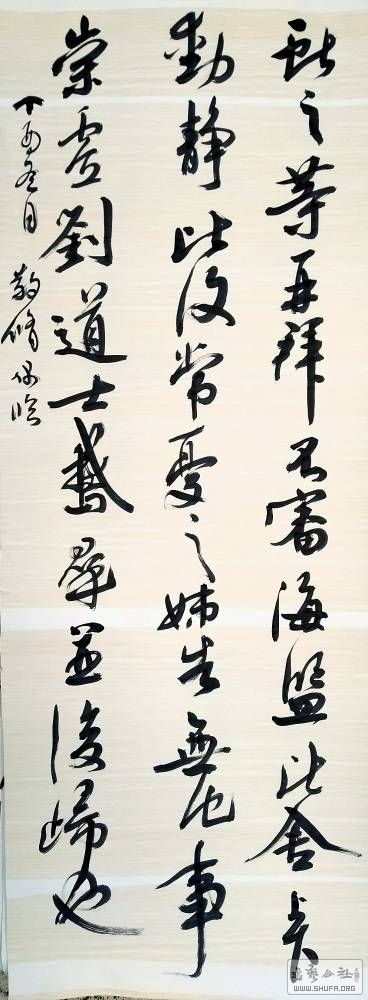 献之等再拜不審海鹽比舍上下
動靜比復常憂之姊告無他事
崇虛劉道士鵝群並復歸也
丁酉冬月 敬脩偶臨
WWW.SHUFA.ORG